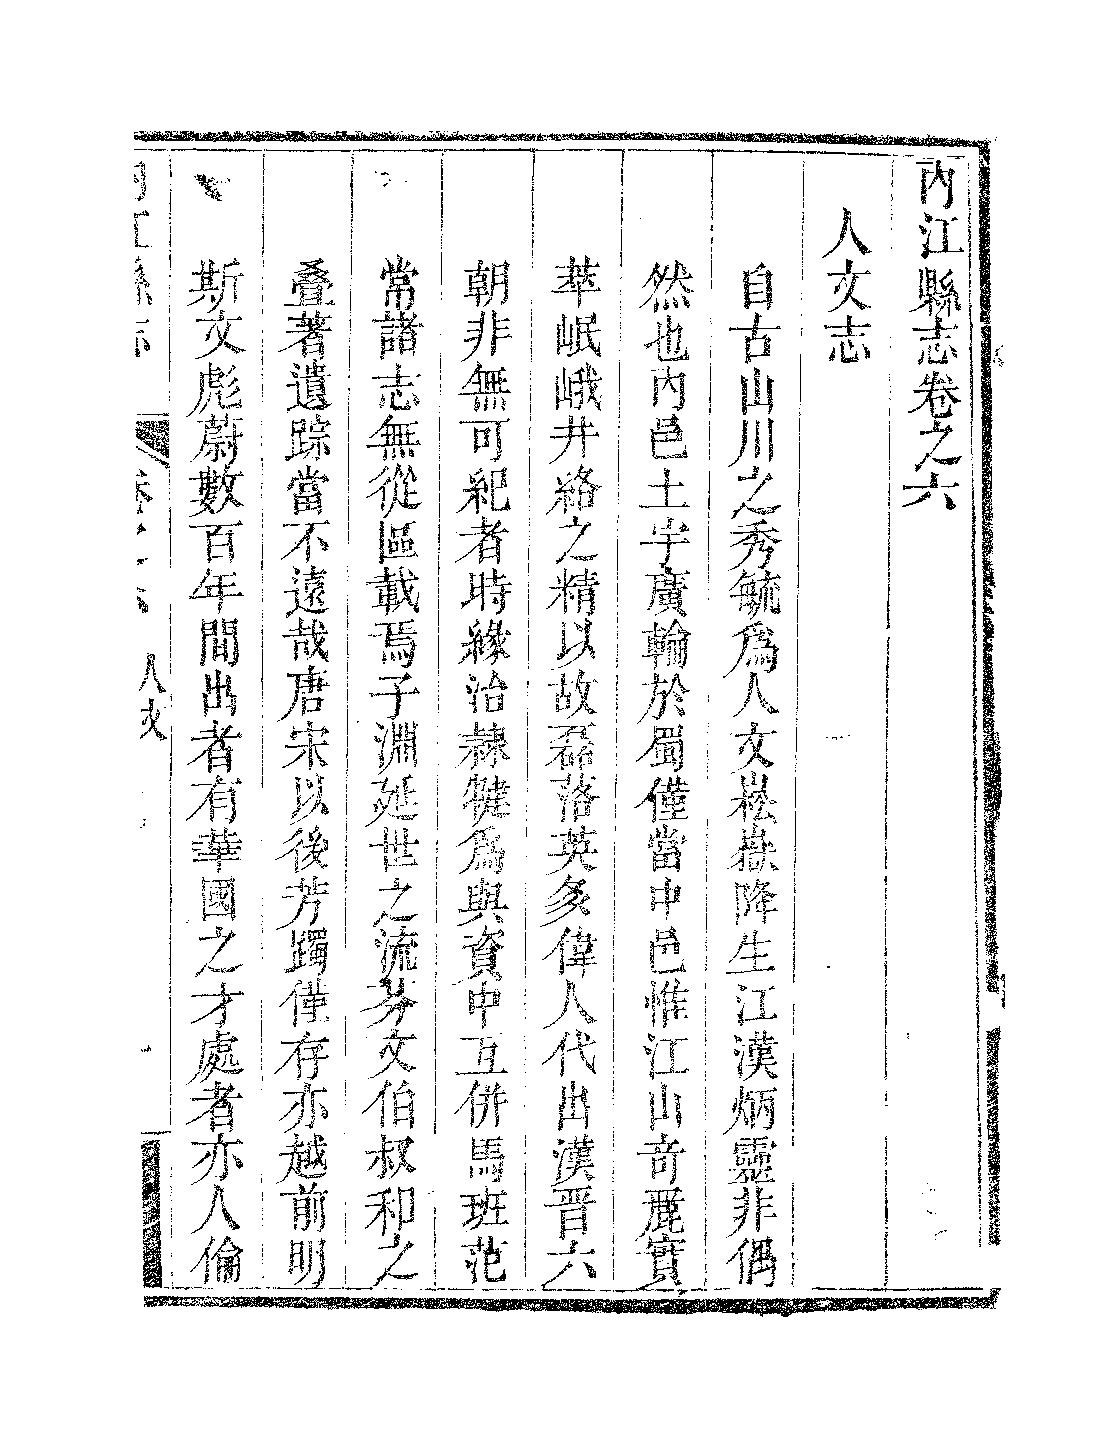 內江縣志卷之六
人文志
自古山川之秀毓爲人文崧嶽降生江漢炳靈非偶
然也內邑土宇廣輪於蜀僅當中邑惟江山奇麗實
萃岷峨井絡之精以故磊落英多偉人代出漢晉六
朝非無可紀者時緣治隸犍爲與資中互併馬班范
常諸志無從區載焉子淵延世之流芬文伯叔和之
叠著遺踪當不遠哉唐宋以後芳躅僅存亦越前明
斯文彪蔚數百年間出者有華國之才處者亦人倫
內江縣志 卷之六 人文